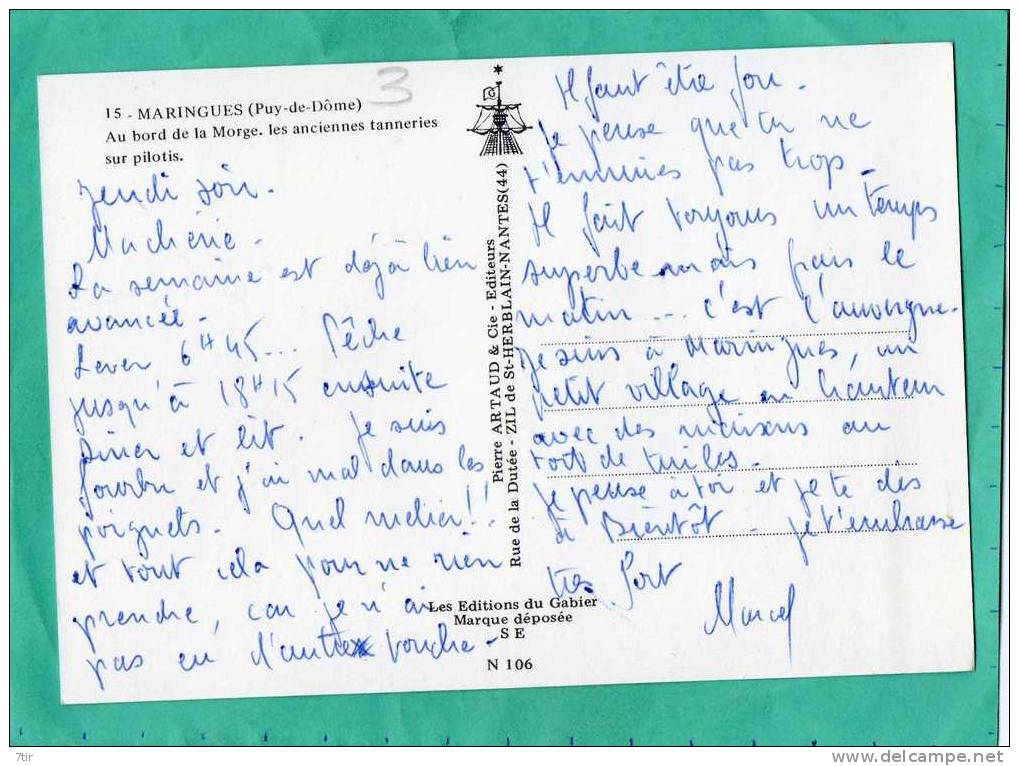 15 - MARINGUES (Puy-de-Dôme)
Au bord de la Morge. les anciennes tanneries
sur pilotis.
3
Jeudi soir.
Ma chérie -
La semaine est déjà bien
avancée.
Lever 6H45... Pêche
jusqu'à 18H15 ensuite
diner et lit. Je suis
fourbu et j'ai mal dans les
poignets. Quel métier!!
et tout cela pour ne rien
prendre, car je n'ai
pas eu d'autre touche -
Il faut être fou.
Je pense que tu ne
t'ennuies pas trop.
Il fait toujours un temps
superbe mais frais le
matin... c'est l'auvergne.
Je suis à Maringues, un
petit village en hauteur
avec des maisons au
toit de tuiles.
Je pense à toi et je te dis
à Bientôt - je t'embrasse
très fort
Marcel
Pierre ARTAUD & Cie - Editeurs
Rue de la Dutée - ZIL de St-HERBLAIN-NANTES(44)
Les Editions du Gabier
Marque déposée
S E
N 106
7tir
delcampe.net